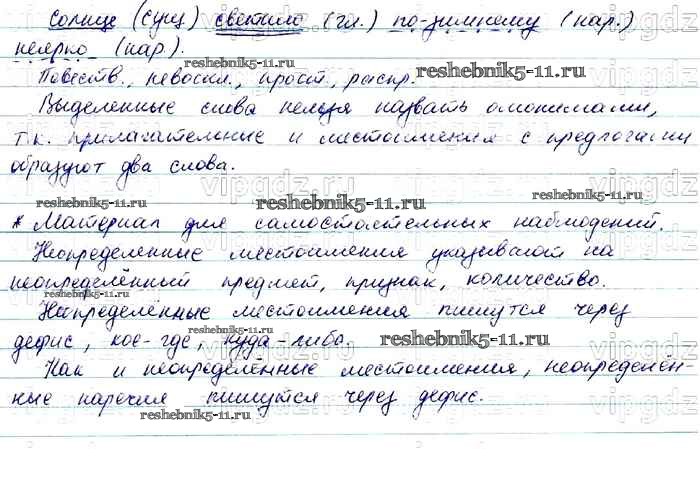 Солнце (сущ.) светило (гл.) по-зимнему (нар.)
неярко (нар.).
reshebnik5-11.ru reshebnik5-11.ru
Повеств., невоскл., прост., распр.
Выделенные слова нельзя назвать омонимами,
т.к. прилагательные и местоимения с предлогами
образуют два слова.
reshebnik5-11.ru reshebnik5-11.ru
* Материал для самостоятельных наблюдений.
Неопределенные местоимения указывают на
неопределённый предмет, признак, количество.
reshebnik5-11.ru
Неопределённые местоимения пишутся через
дефис, кое-где, куда-либо.
reshebnik5-11.ru reshebnik5-11.ru
Как и неопределённые местоимения, неопределён-
ные наречия пишутся через дефис.
reshebnik5-11.ru
vipgdz.ru